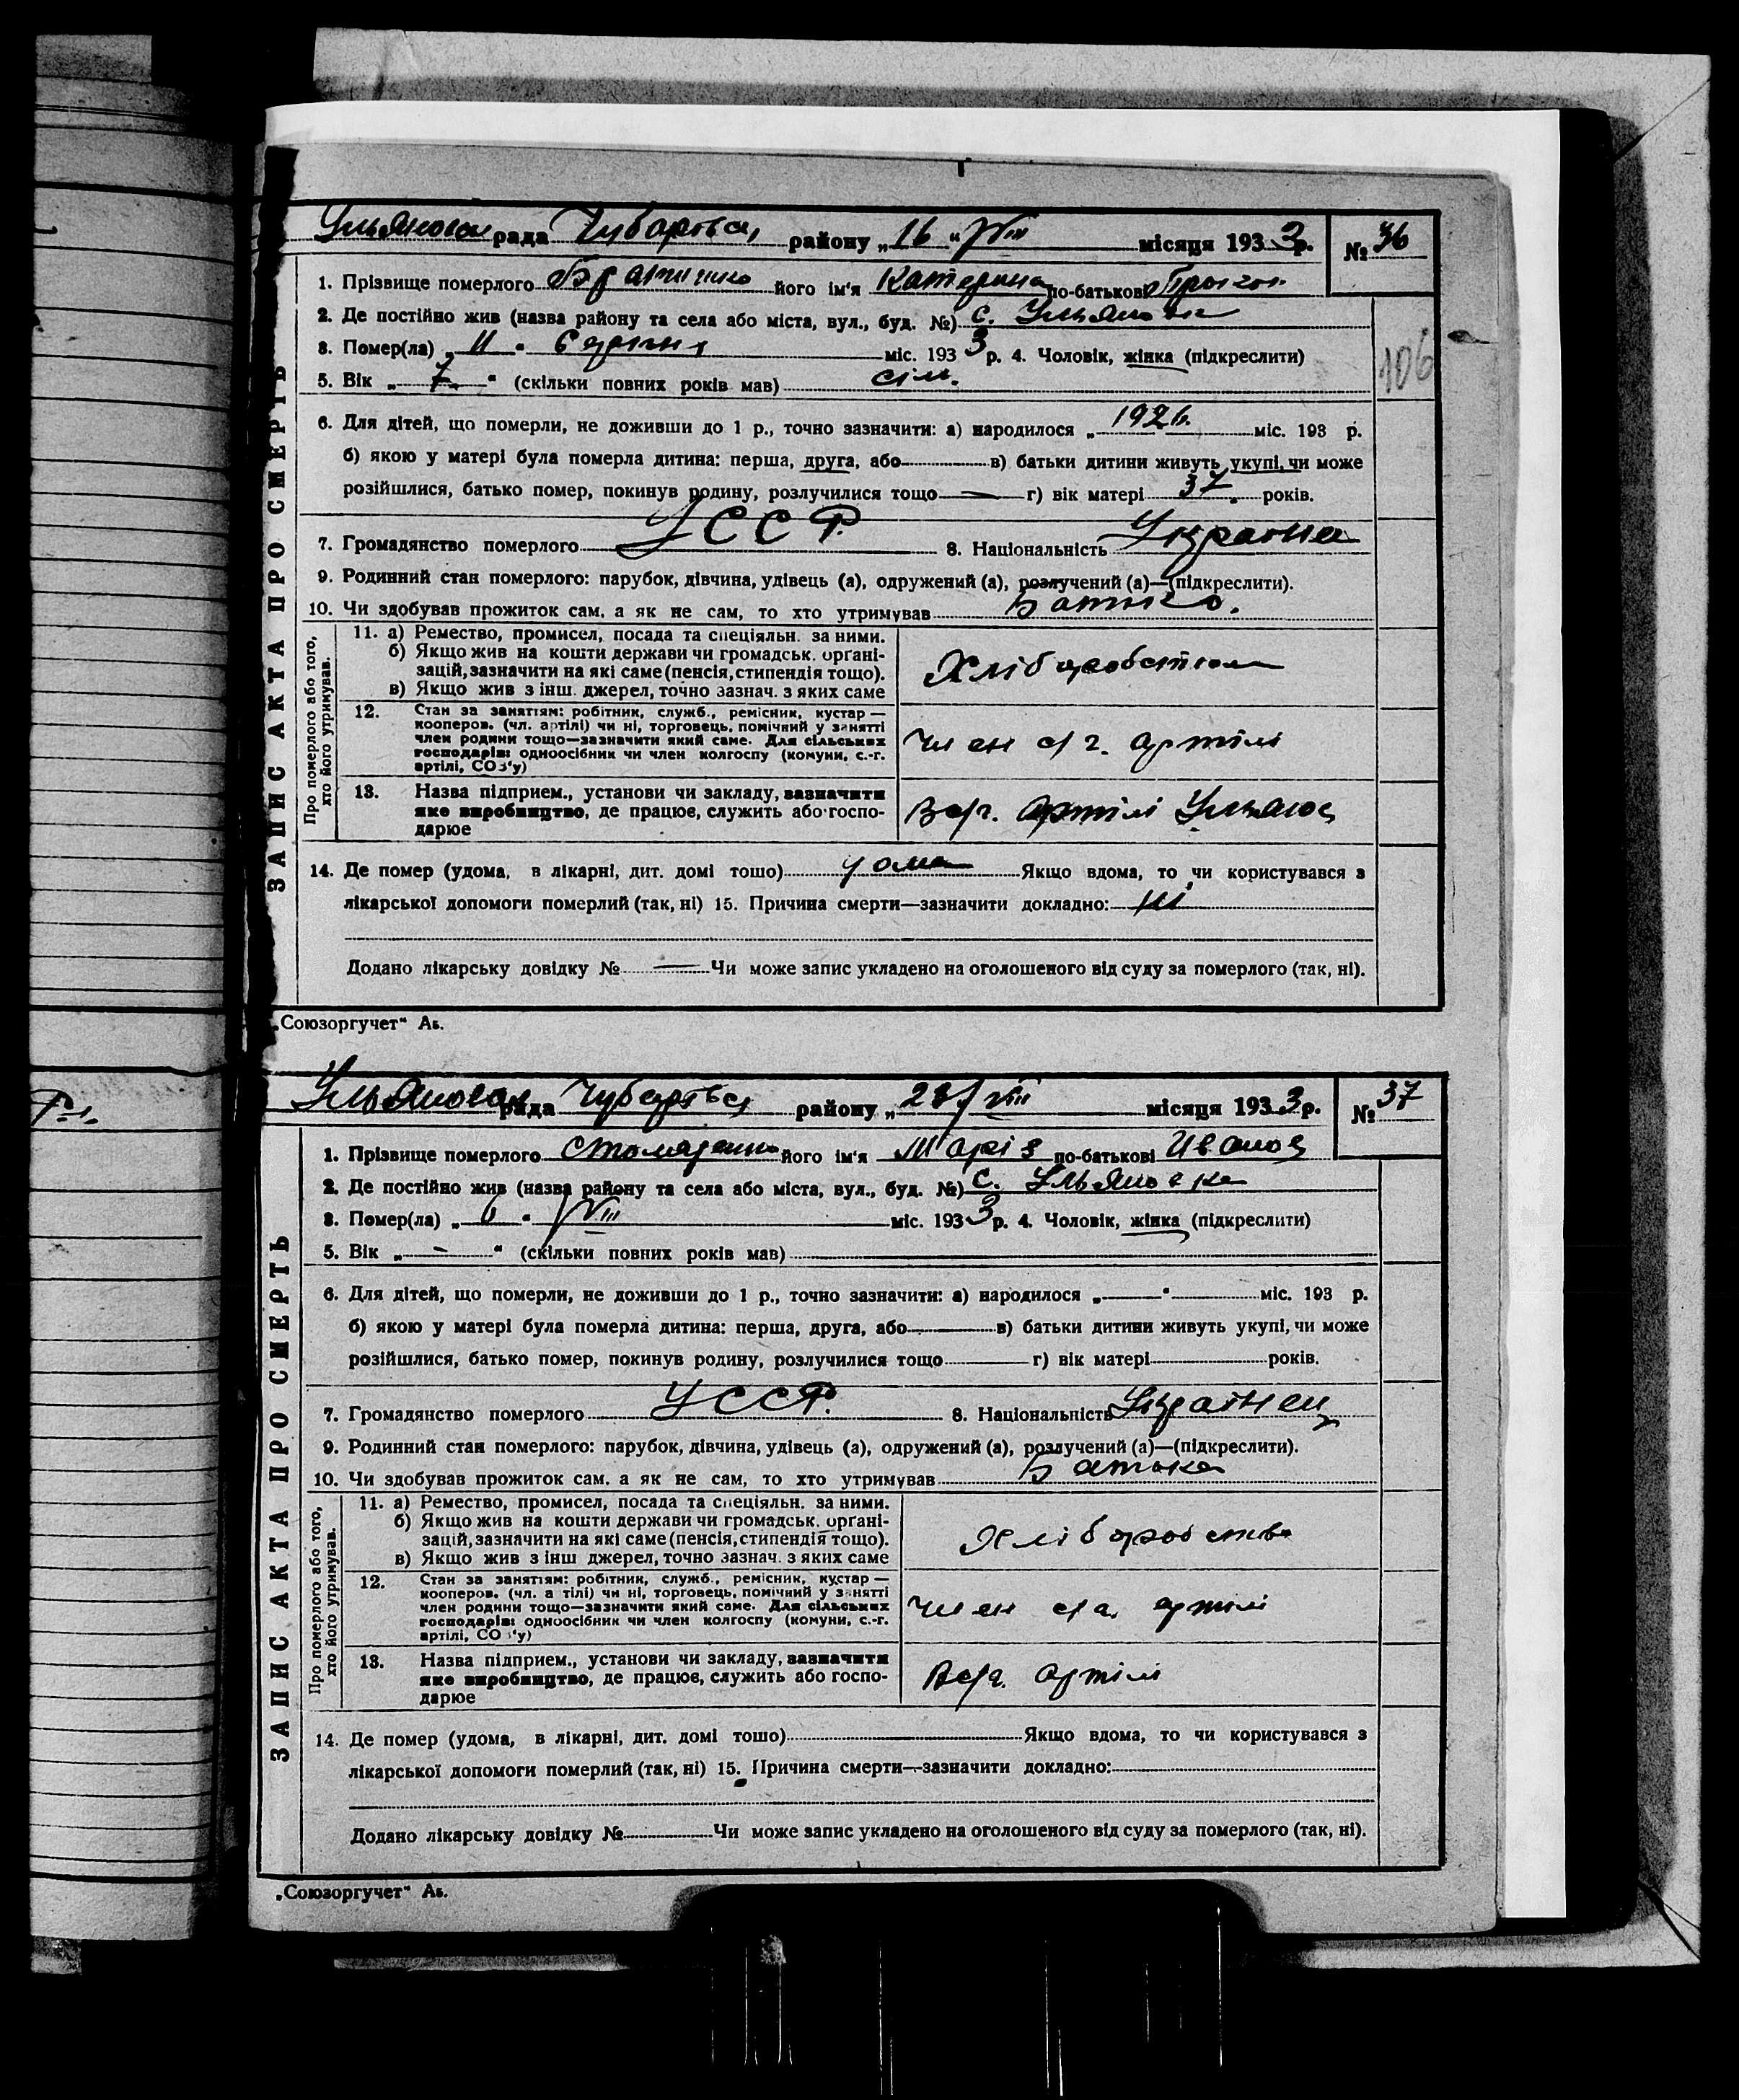 рада Чубарівськ району „16“ VIII місяця 1933р. № 36
106
ЗАПИС АКТА ПРО СМЕРТЬ
1. Прізвище померлого його ім'я Катерина по-батькові
2. Де постійно жив (назва району та села або міста, вул., буд. №) с. Ульяновка
3. Помер(ла) „11“ Серпня міс. 1933 р. 4. Чоловік, жінка (підкреслити)
5. Вік „7“ (скільки повних років мав) сім.
6. Для дітей, що померли, не доживши до 1 р., точно зазначити: а) народилося „1926. міс. 193 р.
б) якою у матері була померла дитина: перша, друга, або — в) батьки дитини живуть укупі, чи може
розійшлися, батько помер, покинув родину, розлучилися тощо — г) вік матері 37. років.
7. Громадянство померлого УССР. 8. Національність
9. Родинний стан померлого: парубок, дівчина, удівець (а), одружений (а), розлучений (а)—(підкреслити).
10. Чи здобував прожиток сам, а як не сам, то хто утримував Батько.
Про померлого або того, хто його утримував.
11. а) Ремество, промисел, посада та спеціяльн. за ними.
б) Якщо жив на кошти держави чи громадськ. органі-
зацій, зазначити на які саме (пенсія, стипендія тощо).
в) Якщо жив з інш. джерел, точно зазнач. з яких саме
12. Стан за заняттям: робітник, служб., ремісник, кустар —
кооперов. (чл. артілі) чи ні, торговець, помічний у занятті
член родини тощо—зазначити який саме. Для сільських
господарів: одноосібник чи член колгоспу (комуни, с.-г.
артілі, СОЗ'у)
Член с/г. артілі
13. Назва підприєм., установи чи закладу, зазначити
яке виробництво, де працює, служить або госпо-
дарює
В с/г. артілі
14. Де помер (удома, в лікарні, дит. домі тощо) удома Якщо вдома, то чи користувався з
лікарської допомоги померлий (так, ні) 15. Причина смерти—зазначити докладно: ні
Додано лікарську довідку № — Чи може запис укладено на оголошеного від суду за померлого (так, ні).
„Союзоргучет“ Ав.
рада Чубарівськ району „23/VIII місяця 1933р. № 37
ЗАПИС АКТА ПРО СМЕРТЬ
1. Прізвище померлого його ім'я Марія по-батькові Иванов
2. Де постійно жив (назва району та села або міста, вул., буд. №) с. Ульяновка
3. Помер(ла) „ “ VIII міс. 1933 р. 4. Чоловік, жінка (підкреслити)
5. Вік „—“ (скільки повних років мав)
6. Для дітей, що померли, не доживши до 1 р., точно зазначити: а) народилося „—“ міс. 193 р.
б) якою у матері була померла дитина: перша, друга, або — в) батьки дитини живуть укупі, чи може
розійшлися, батько помер, покинув родину, розлучилися тощо г) вік матері років.
7. Громадянство померлого УССР. 8. Національність Українец
9. Родинний стан померлого: парубок, дівчина, удівець (а), одружений (а), розлучений (а)—(підкреслити).
10. Чи здобував прожиток сам, а як не сам, то хто утримував Батька
Про померлого або того, хто його утримував.
11. а) Ремество, промисел, посада та спеціяльн. за ними.
б) Якщо жив на кошти держави чи громадськ. органі-
зацій, зазначити на які саме (пенсія, стипендія тощо).
в) Якщо жив з інш джерел, точно зазнач. з яких саме
Хліборобство
12. Стан за заняттям: робітник, служб., ремісник, кустар —
кооперов. (чл. а тілі) чи ні, торговець, помічний у занятті
член родини тощо—зазначити який саме. Для сільських
господарів: одноосібник чи член колгоспу (комуни, с.-г.
артілі, СОЗ'у)
Член артілі
13. Назва підприєм., установи чи закладу, зазначити
яке виробництво, де працює, служить або госпо-
дарює
В с/г. артілі
14. Де помер (удома, в лікарні, дит. домі тощо) Якщо вдома, то чи користувався з
лікарської допомоги померлий (так, ні) 15. Причина смерти—зазначити докладно:
Додано лікарську довідку № Чи може запис укладено на оголошеного від суду за померлого (так, ні).
„Союзоргучет“ Ав.